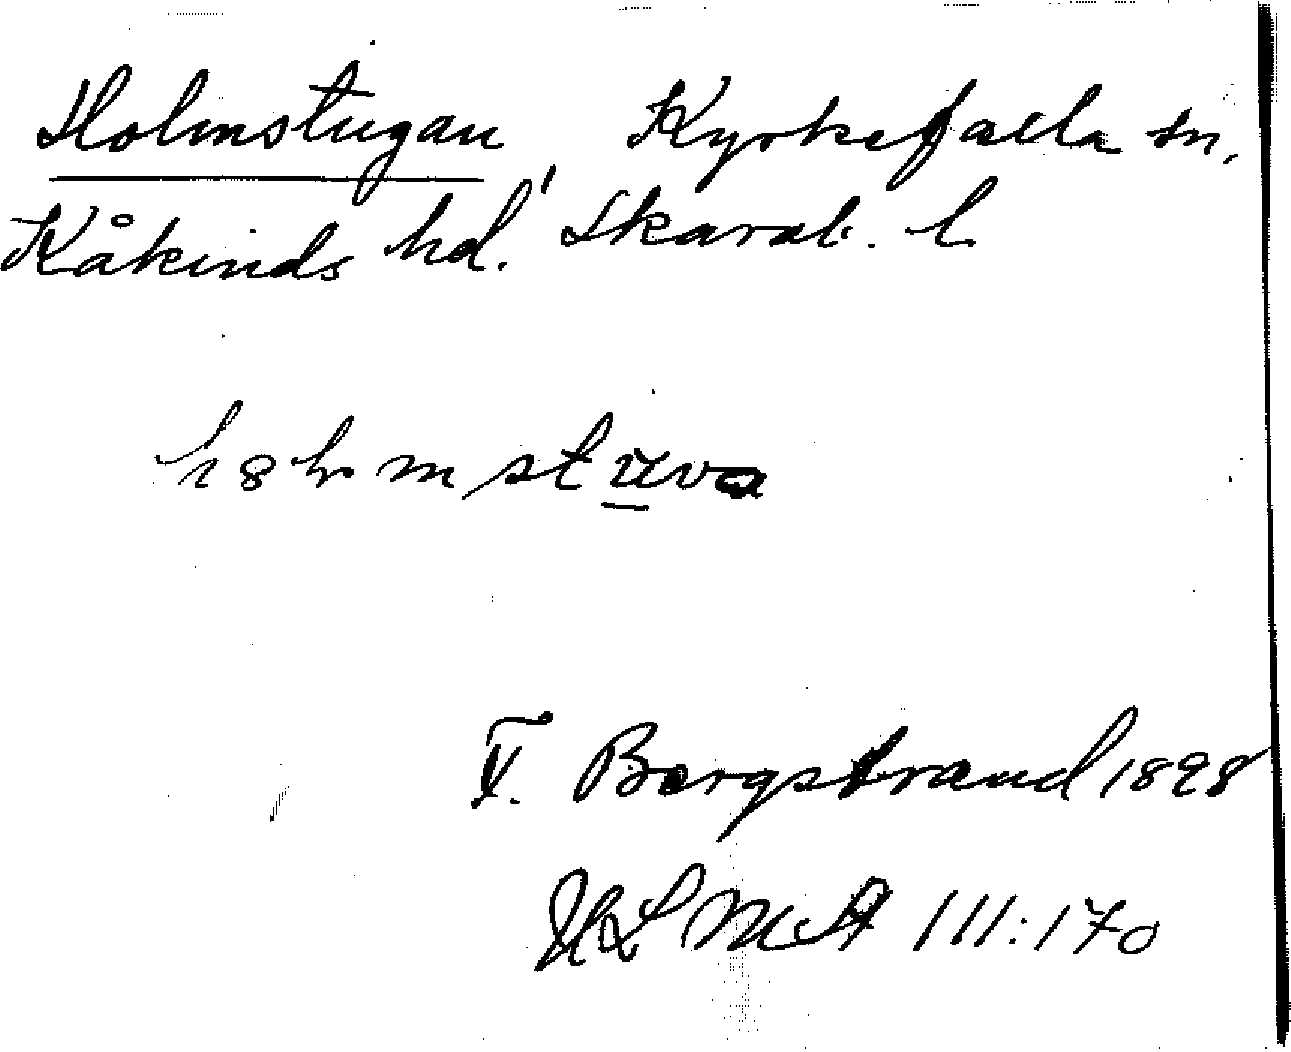 Holmstugan, Kyrkefalla sn,
Kåkinds hd. Skarab. l.
V. Bergstrand 1898
ULMA 111:170